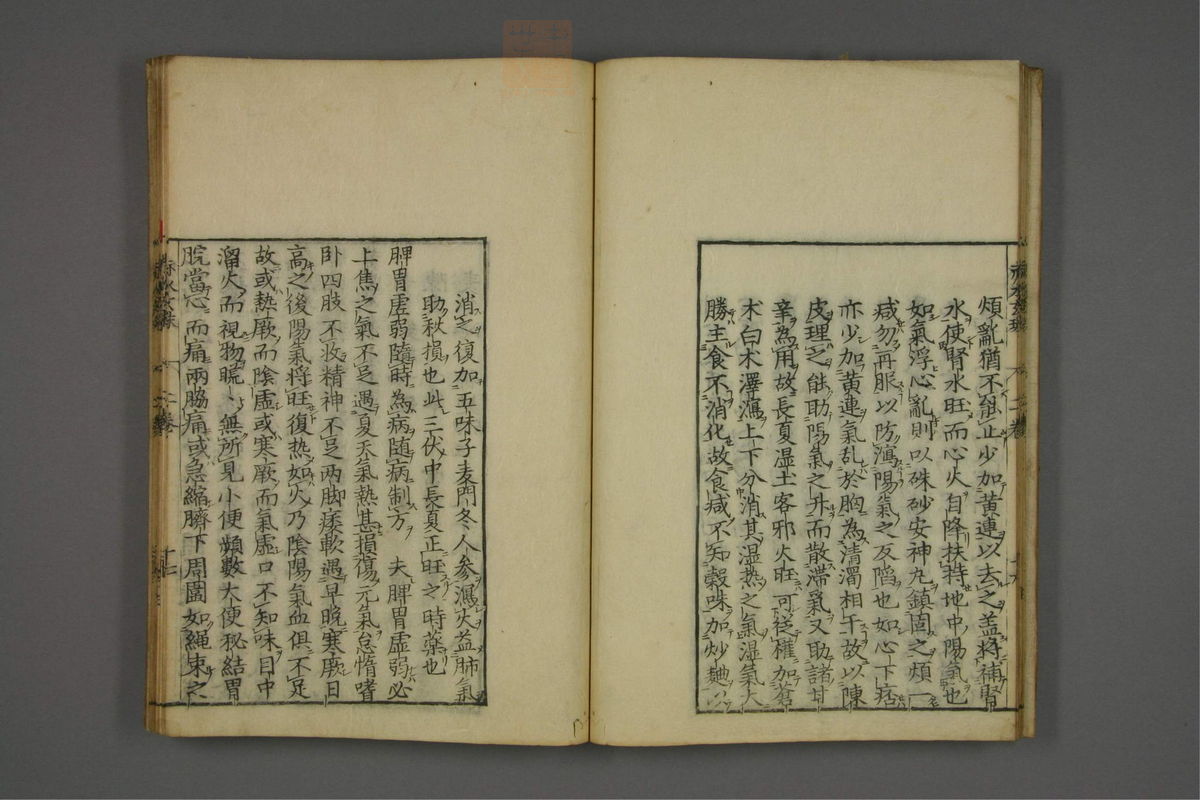 煩亂猶不能止少加黃連以去之盖将補腎
水使腎水旺而心火自降扶持地中陽氣也
如氣浮心亂則以硃砂安神丸鎮固之煩一
减勿再服以防瀉陽氣之反陷也如心下痞
亦少加黃連氣乱於胸為清濁相干故以陳
皮理之能助陽氣之升而散滞氣又助諸甘
辛為用故長夏湿土客邪火旺可從權加蒼
朮白朮澤瀉上下分消其湿热之氣湿氣大
勝主食不消化故食减不知穀味加炒麯以
消之復加五味子麦門冬人參瀉火益肺氣
助秋損也此三伏中長夏正旺之時藥也
脾胃虛弱隨時為病随病制方 夫脾胃虛弱必
上焦之氣不足遇夏天氣熱甚損傷元氣怠惰嗜
卧四肢不收精神不足两脚痿軟遇早晚寒厥日
高之後陽氣将旺復热如火乃陰陽氣血俱不足
故或熱厥而陰虛或寒厥而氣虛口不知味目中
溜火而視物䀮〻無所見小便頻數大便秘結胃
脘當心而痛兩脇痛或急縮臍下周圍如繩束之
二卷
十二